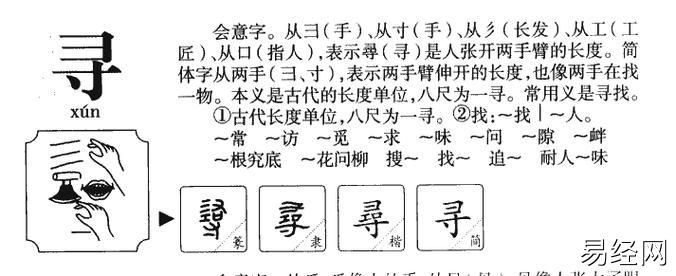 寻
xún
会意字。从彐(手)、从寸(手)、从彡(长发)、从工(工
匠)、从口(指人),表示尋(寻)是人张开两手臂的长度。简
体字从两手(彐、寸),表示两手臂伸开的长度,也像两手在找
一物。本义是古代的长度单位,八尺为一寻。常用义是寻找。
①古代长度单位,八尺为一寻。②找:~找|~人。
~常 ~访 ~觅 ~求 ~味 ~问 ~隙 ~衅
~根究底 ~花问柳 搜~ 找~ 追~ 耐人~味
篆
尋 隶
尋 楷
寻 简
易经网